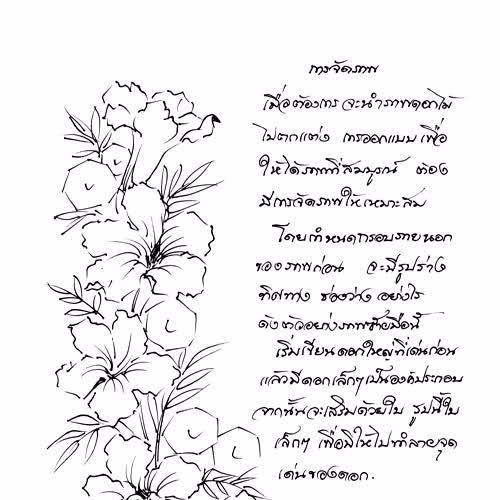 การจัดภาพ
เมื่อต้องการ จะนำภาพดอกไม้
ไปตกแต่ง การออกแบบ เพื่อ
ให้ได้ภาพที่สมบูรณ์ ต้อง
มีการจัดภาพให้เหมาะสม
โดยกำหนดกรอบภายนอก
ของภาพก่อน จะมีรูปร่าง
ทิศทาง ช่องว่าง อย่างไร
ดังตัวอย่างภาพซ้ายมือนี้
เริ่มเขียนดอกใหญ่ที่เด่นก่อน
แล้วมีดอกเล็กๆเป็นองค์ประกอบ
จากนั้นจะเสริมด้วยใบ รูปนี้ใบ
เล็กๆ เพื่อมิให้ไปทำลายจุด
เด่นของดอก.